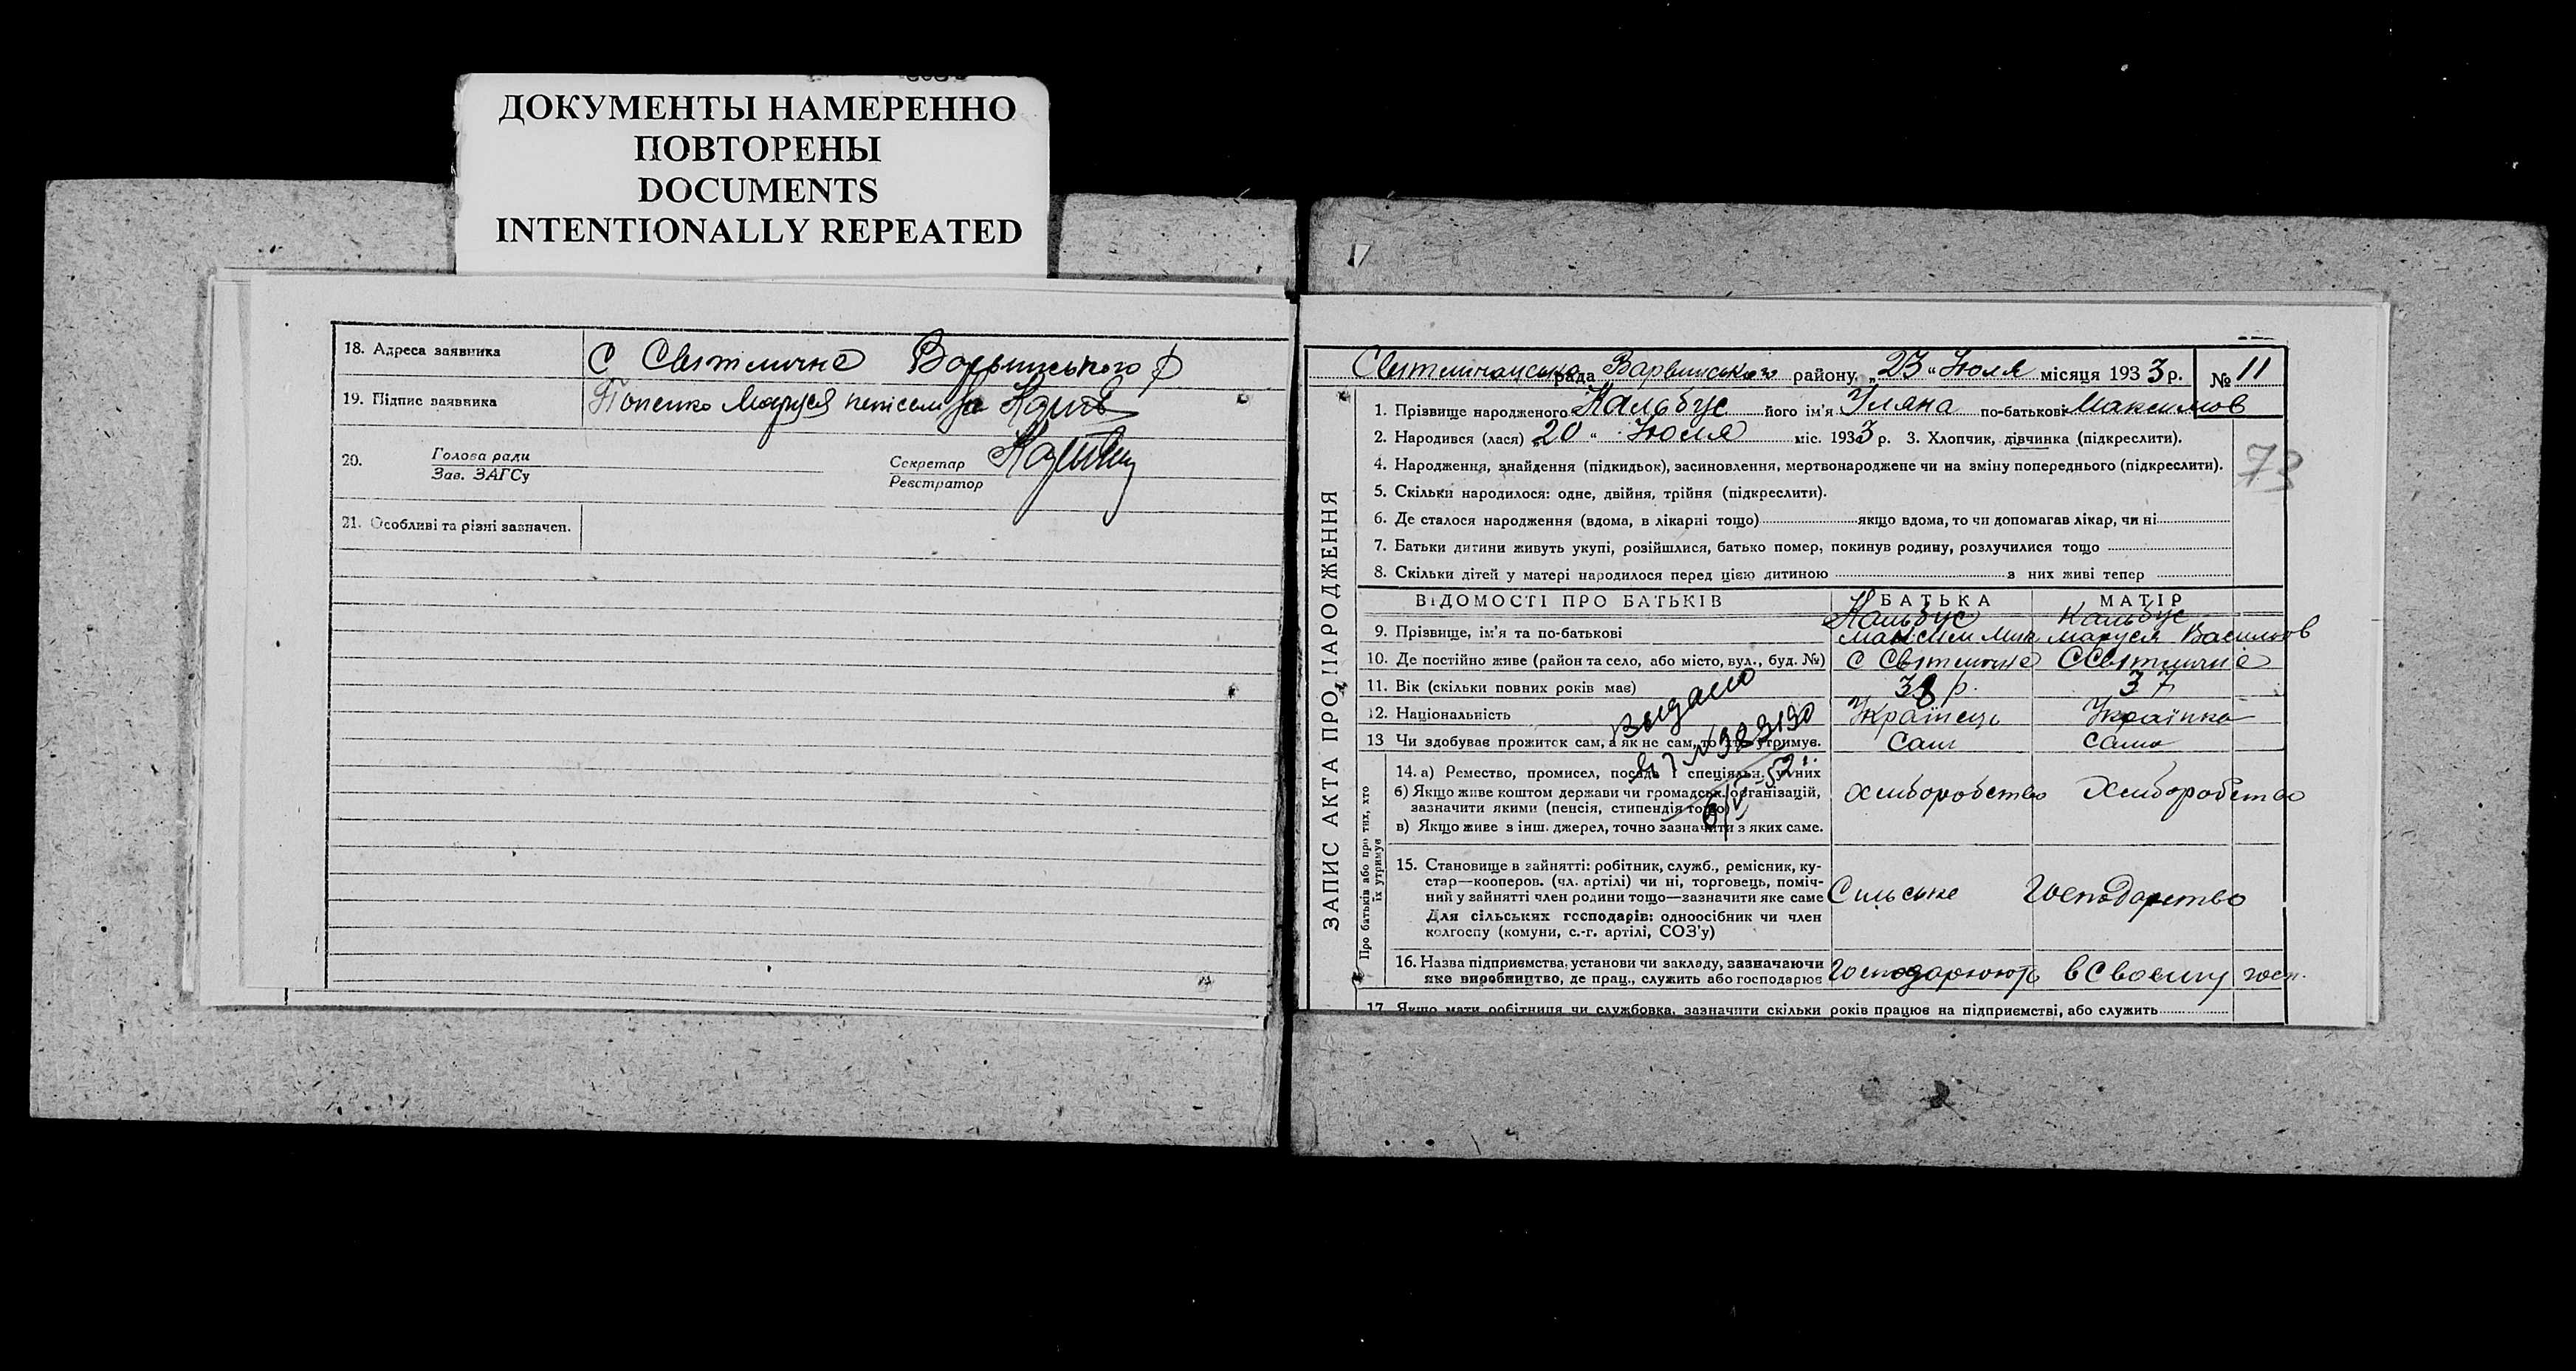 ДОКУМЕНТЫ НАМЕРЕННО
ПОВТОРЕНЫ
DOCUMENTS
INTENTIONALLY REPEATED
18. Адреса заявника С Світлична Варвинського р
19. Підпис заявника Попенко Маруся неписем за
20. Голова ради Секретар
Зав. ЗАГСу Реєстратор
21. Особливі та різні зазначен.
Світличанська рада Варвинського району „23“ Июля місяця 1933 р. № 11
1. Прізвище народженого Кальбус його ім'я Уляна по-батькові Максимов
2. Народився (лася) „20“ Июля міс. 1933 р. 3. Хлопчик, дівчинка (підкреслити).
73
4. Народження, знайдення (підкидьок), засиновлення, мертвонароджене чи на зміну попереднього (підкреслити).
5. Скільки народилося: одне, двійня, трійня (підкреслити).
6. Де сталося народження (вдома, в лікарні тощо) якщо вдома, то чи допомагав лікар, чи ні
7. Батьки дитини живуть укупі, розійшлися, батько помер, покинув родину, розлучилися тощо
8. Скільки дітей у матері народилося перед цією дитиною з них живі тепер
ЗАПИС АКТА ПРО НАРОДЖЕННЯ
ВІДОМОСТІ ПРО БАТЬКІВ БАТЬКА МАТІР
Кальбус Кальбус
9. Прізвище, ім'я та по-батькові Максим Мик Маруся Васильов
10. Де постійно живе (район та село, або місто, вул., буд. №) С Світличне С Світличне
11. Вік (скільки повних років має) 38 р. 37
12. Національність Українець Українка
13 Чи здобуває прожиток сам, а як не сам, то хто утримує. сам сама
Выдано
№ 983190
Про батьків або про тих, хто їх утримує
14. а) Ремество, промисел, посада і спеціяльн. у них
б) Якщо живе коштом держави чи громадськ. організацій, хліборобство хліборобство
зазначити якими (пенсія, стипендія тощо)
в) Якщо живе з інш. джерел, точно зазначити з яких саме.
15. Становище в зайнятті: робітник, служб., ремісник, ку-
стар—кооперов. (чл. артілі) чи ні, торговець, поміч-
ний у зайнятті член родини тощо—зазначити яке саме Сильське господарство
Для сільських господарів: одноосібник чи член
колгоспу (комуни, с.-г. артілі, СОЗ'у)
16. Назва підприємства, установи чи закладу, зазначаючи
яке виробництво, де прац., служить або господарює Господарюють в своему госп.
17. Якщо мати робітниця чи службовка, зазначити скільки років працює на підприємстві, або служить